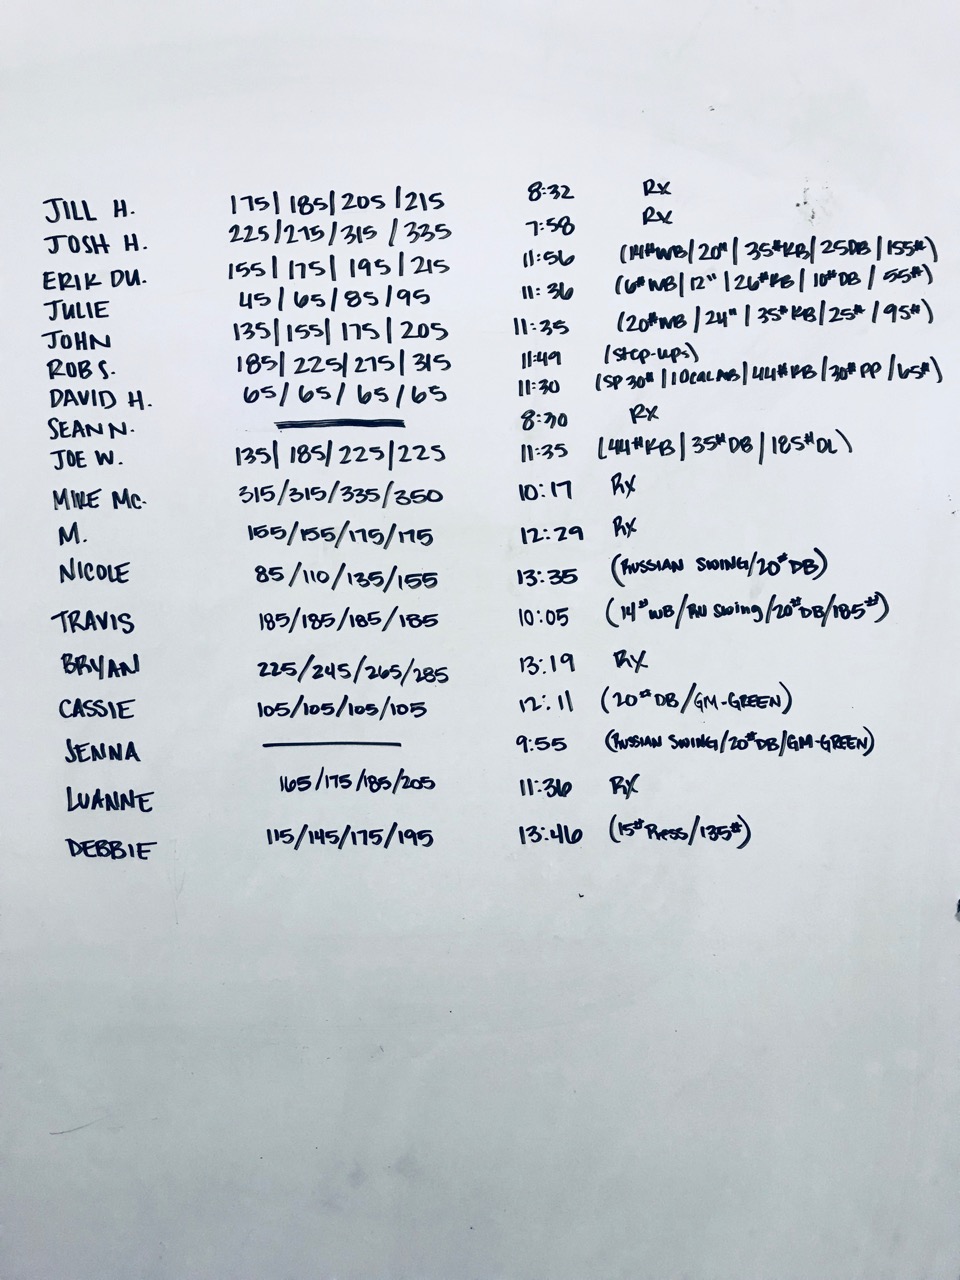 JILL H. 175/185/205/215 8:32 Rx
JOSH H. 225/275/315/335 7:58 Rx
ERIK DU. 155/175/195/215 11:56 (14#WB/20"/35#KB/25DB/155#)
JULIE 45/65/85/95 11:36 (6#WB/12"/26#KB/10#DB/55#)
JOHN 135/155/175/205 11:35 (20#WB/24"/35#KB/25#/95#)
ROB S. 185/225/275/315 11:49 (Step-ups)
DAVID H. 65/65/65/65 11:30 (SP 30#/10CAL AB/44#KB/30#PP/65#)
SEAN N. 8:30 Rx
JOE W. 135/185/225/225 11:35 (44#KB/35#DB/185#DL)
MIKE MC. 315/315/335/350 10:17 Rx
M. 155/155/175/175 12:29 Rx
NICOLE 85/110/135/155 13:35 (RUSSIAN SWING/20#DB)
TRAVIS 185/185/185/185 10:05 (14#WB/RU Swing/20#DB/185#)
BRYAN 225/245/265/285 13:19 RX
CASSIE 105/105/105/105 12:11 (20#DB/GM-GREEN)
JENNA 9:55 (RUSSIAN SWING/20#DB/GM-GREEN)
LUANNE 165/175/185/205 11:36 RX
DEBBIE 115/145/175/195 13:46 (15# Press/135#)